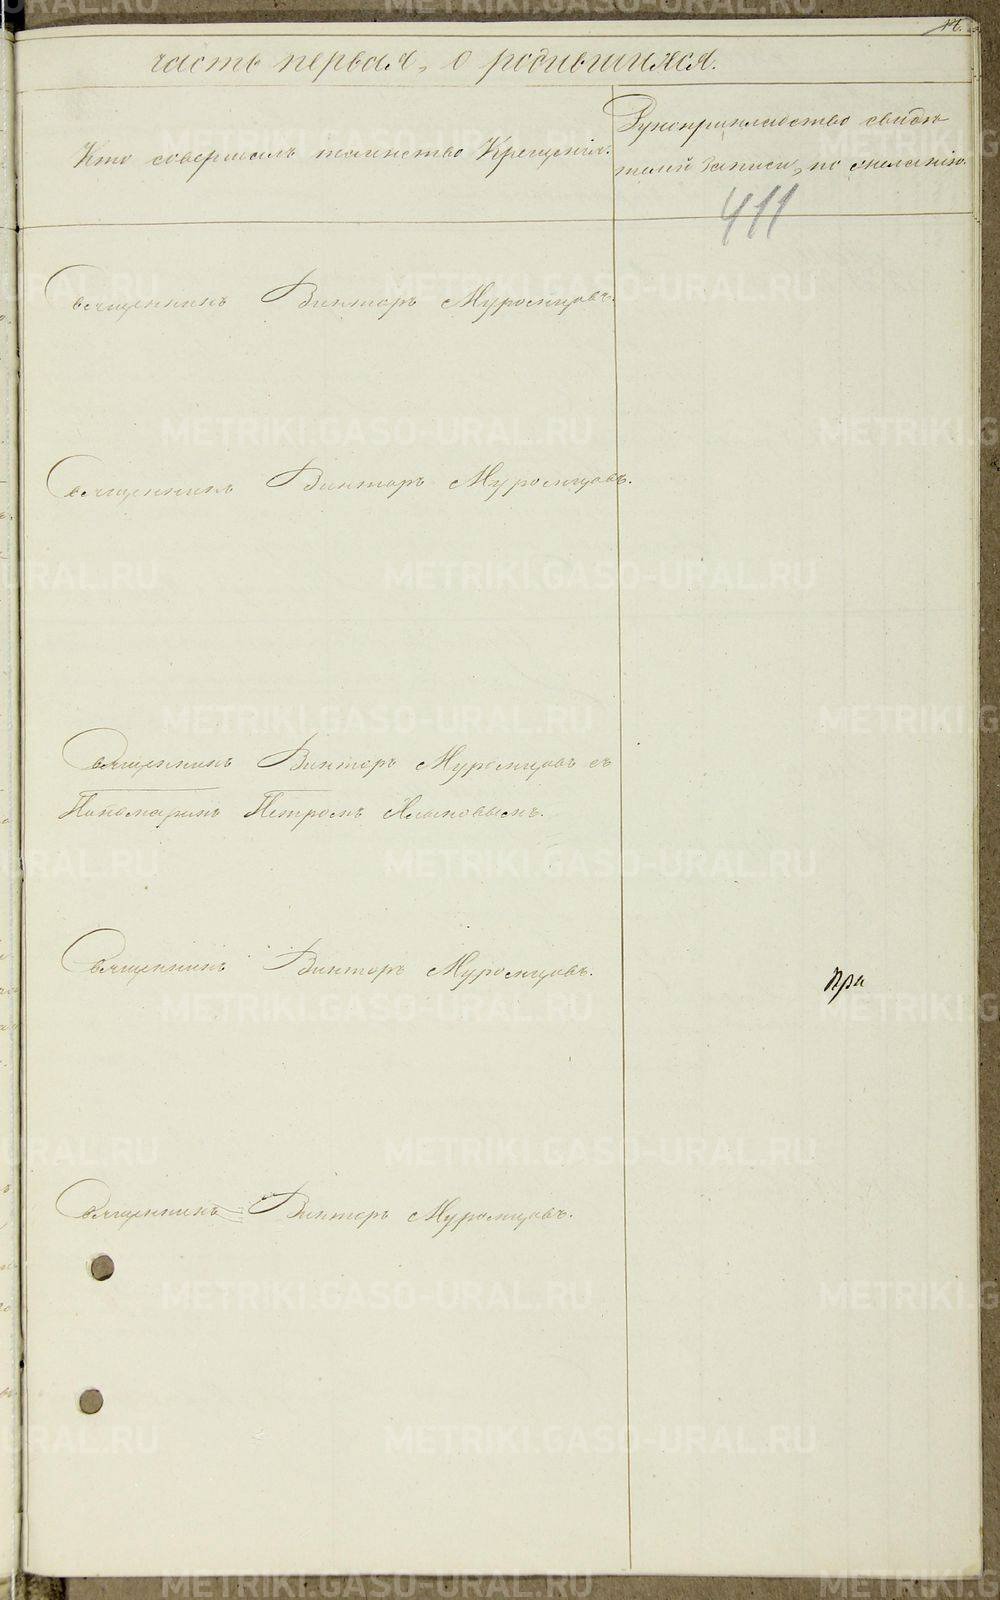 часть первая, о родившихся.
Кто совершалъ таинство Крещенія.
Рукоприкладство свидѣ
телей записи, по желанію.
411
Священникъ Викторъ Муромцовъ.
Священникъ Викторъ Муромцовъ.
Священникъ Викторъ Муромцовъ съ
Пономаремъ Петромъ
Священникъ Викторъ Муромцовъ.
При
Священникъ Викторъ Муромцовъ.
METRIKI.GASO-URAL.RU